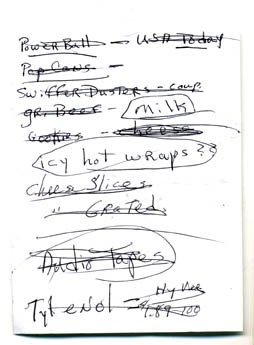 PowerBall - USA Today
Pop Cans -
Swiffer Dusters - coup.
gr. Beef - milk
Cookies - cheese
icy hot wraps??
Chees Slices
" Grated
Audio Tapes
Hy Vee
Tylenol - 4.89 100